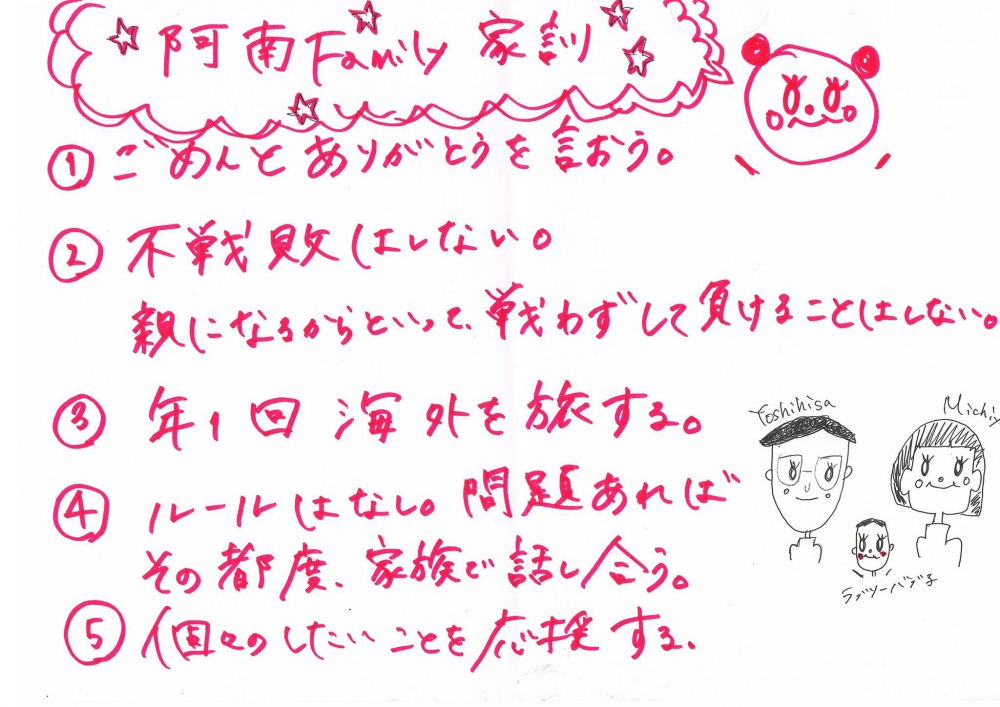 阿南Family 家訓
① ごめんとありがとうを言おう。
② 不戦敗はしない。
親になるからといって、戦わずして負けることはしない。
③ 年1回 海外を旅する。
④ ルールはなし。問題あれば
その都度、家族で話し合う。
⑤ 個々のしたいことを応援する。
Yoshihisa
Michiy